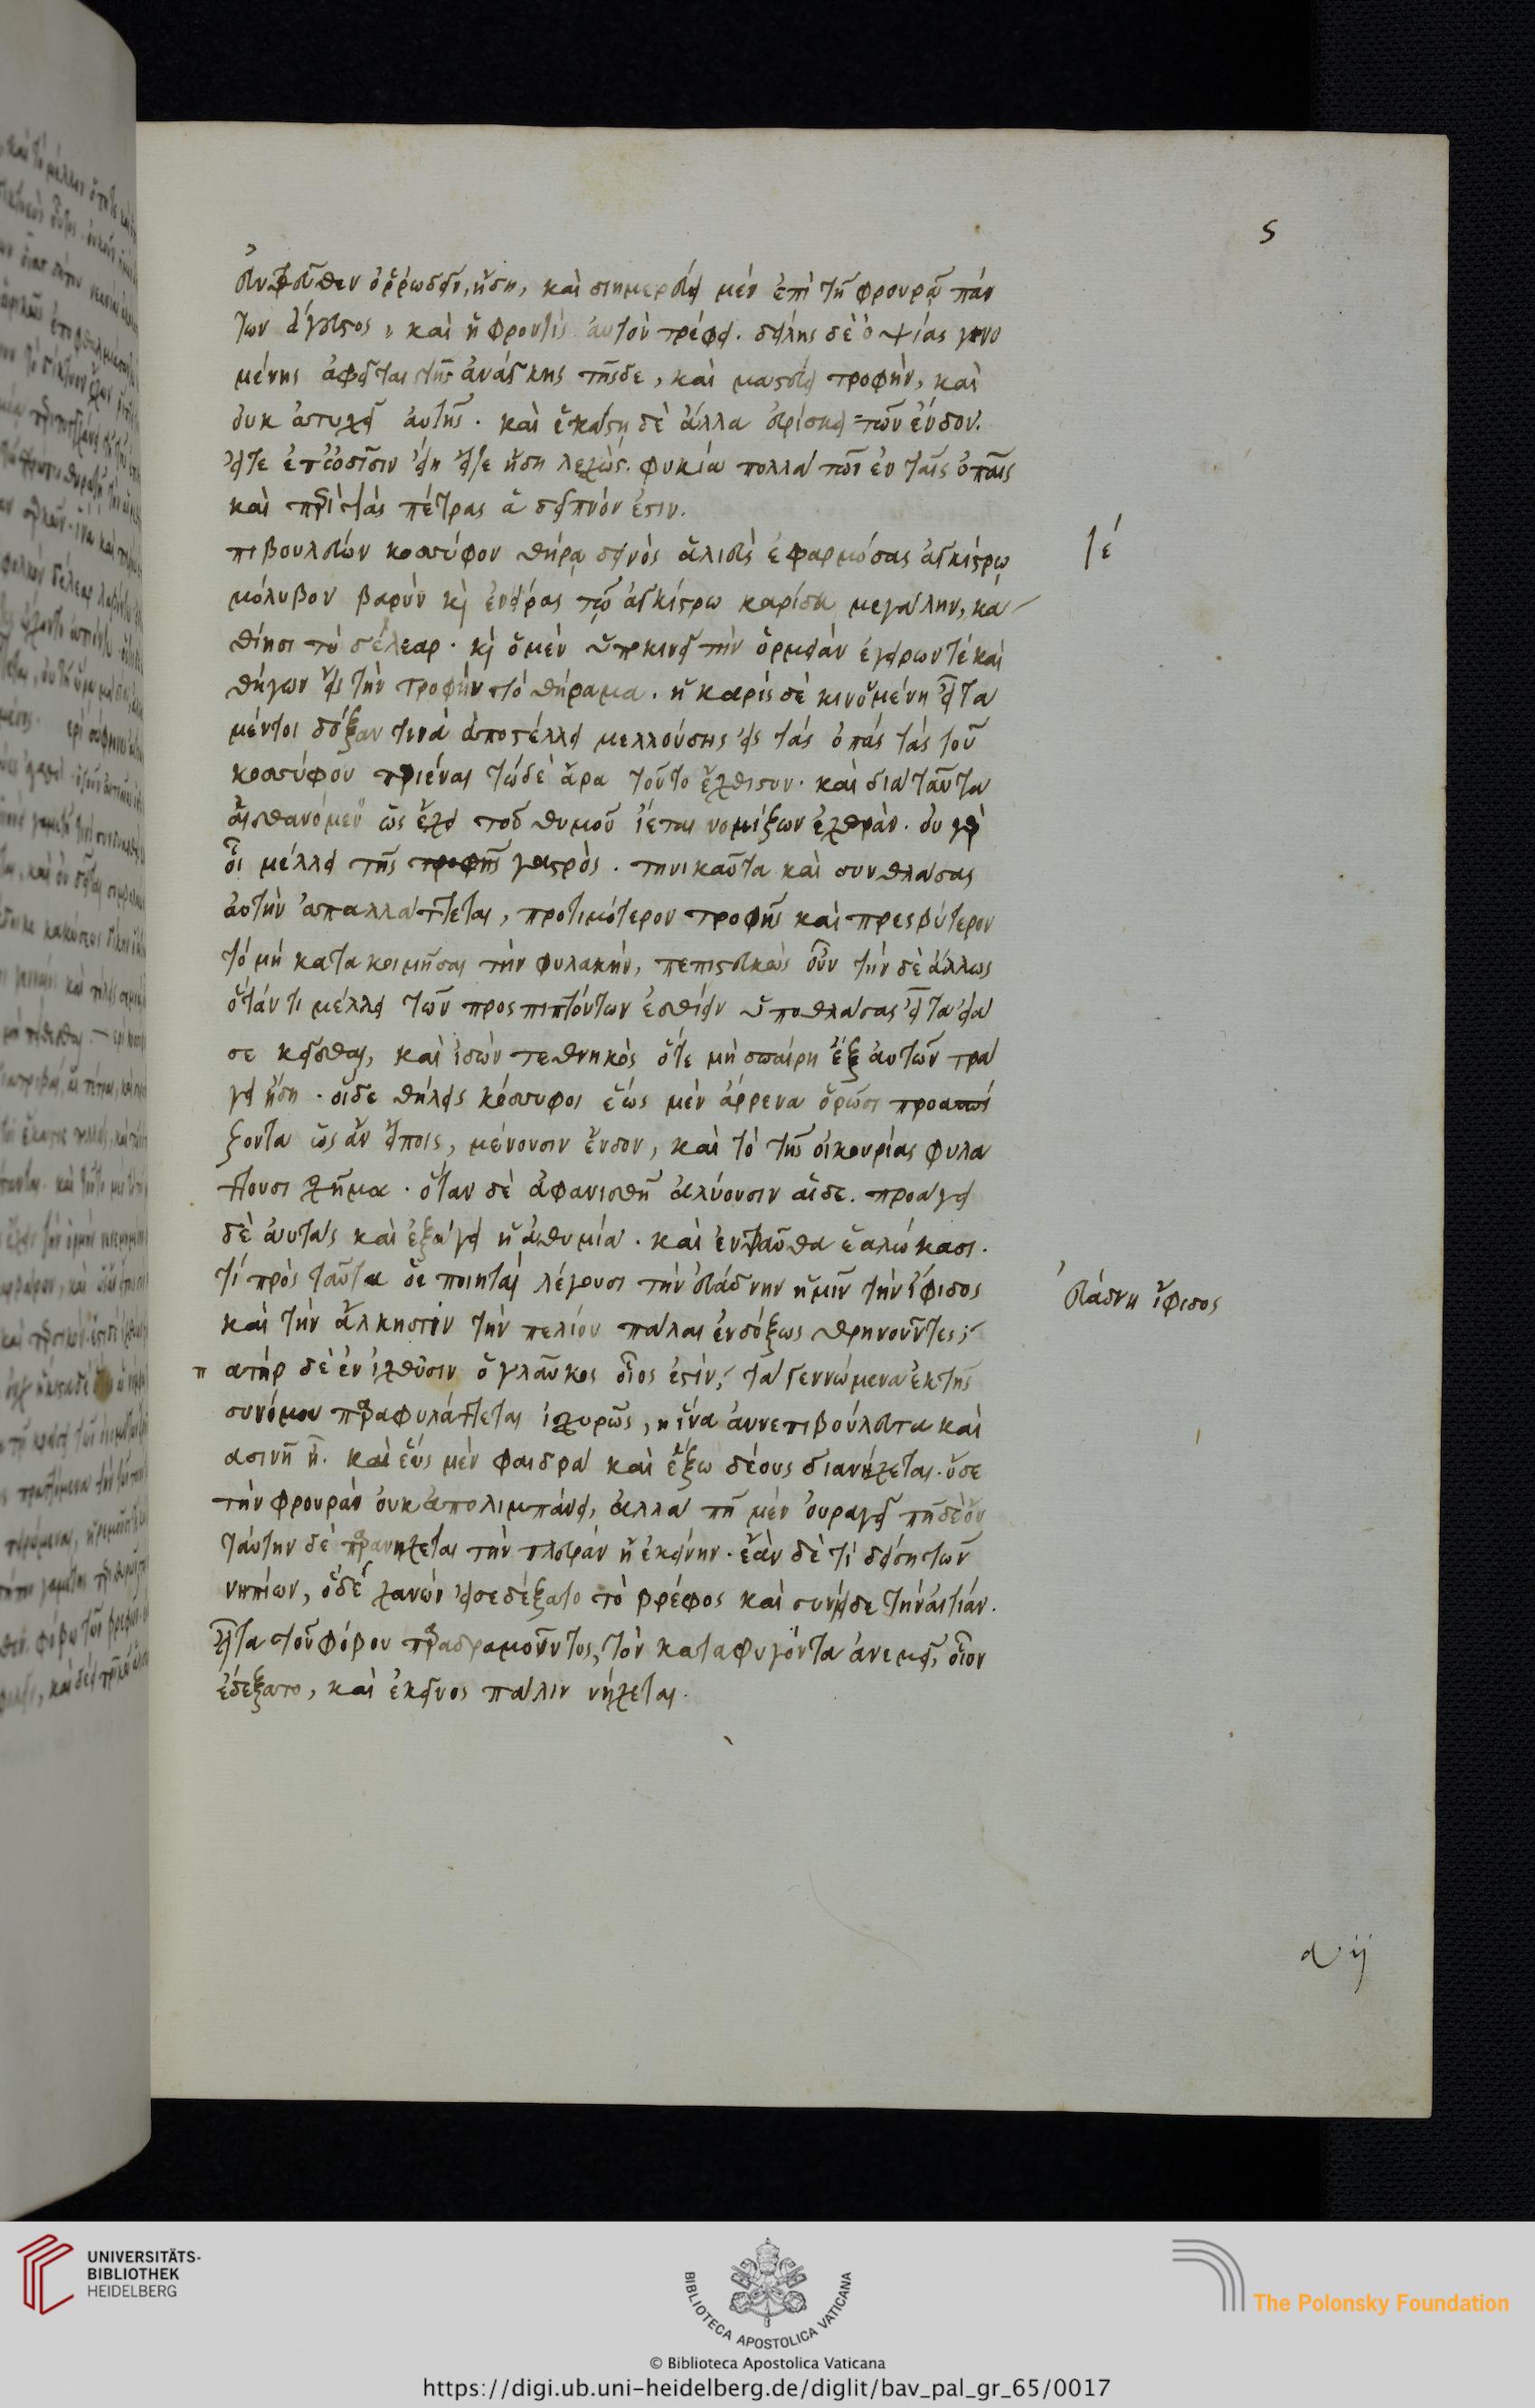 ς
ἐντεῦθεν ὀῤῥωδεῖν, ἤδη, καὶ διημερεύει μὲν ἐπὶ τῇ φρουρᾷ πάν
των ἄγευστος, καὶ ἡ φροντὶς αὐτὸν τρέφει. δείλης δὲ ὀψίας γενο
μένης ἀφεῖται τῆς ἀνάγκης τῆσδε, καὶ μαστεύει τροφήν, καὶ
οὐκ ἀτυχεῖ αὐτῆς. καὶ ἑκάστη δὲ ἄλλα εὑρίσκει τῶν ἔνδον.
εἴτε ἐπ' ὠδῖσιν εἴη εἴτε ἤδη λεχώς. φυκία πολλὰ τῶν ἐν ταῖς ὀπαῖς
καὶ περὶ τὰς πέτρας ἃ δεῖπνόν ἐστιν.
πιβουλεύων κοσσύφου θήρᾳ δεινὸς ἁλιεὺς ἐφαρμόσας ἀγκίστρῳ
μόλυβον βαρὺν κỳ ἐνείρας τῷ ἀγκίστρω καρίδα μεγάλην, κα
θίησι τὸ δέλεαρ. καὶ ὁ μὲν ὑποκινεῖ τὴν ὁρμιὰν ἐγείρων τὲ καὶ
θήγων εἰς τὴν τροφὴν τὸ θήραμα. ἡ καρὶς δὲ κινουμένη εἶτα
μέντοι δόξαν τινὰ ἀποστέλλει μελλούσης εἰς τὰς ὀπὰς τὰς τοῦ
κοσσύφου παριέναι τῷδε ἄρα τοῦτο ἔχθιστον. καὶ διὰ ταῦτα
αἰσθανόμενος ὡς ἔχει τοῦ θυμοῦ ἵεται νομίζων ἐχθράν. οὐ γὰρ
οἷ μέλλει τῆς τροφῆς γαστρός. τηνικαῦτα καὶ συνθλάσας
αὐτὴν ἀπαλλάττεται, προτιμότερον τροφῆς καὶ πρεσβύτερον
τὸ μὴ κατακοιμῆσαι τὴν φυλακήν, πεπιστευκὼς οὖν τὴν δὲ ἄλλως
ὅταν τι μέλλει τῶν προσπιπτόντων ἐσθίειν ὑποθλάσας εἶτα εἴα
σε κεῖσθαι, καὶ ἰδὼν τεθνηκὸς ὅτε μὴ σπαίρη ἐξ αὐτῶν τρά
γει ἤδη. αἵδε θήλεις κόσσυφοι ἕως μὲν ἄρρενα ὁρῶσι προασπί
ζοντα ὡς ἂν εἴποις, μένουσιν ἔνδον, καὶ τὸ τῆς οἰκουρίας φυλά
ττουσι σχῆμα. ὅταν δὲ ἀφανισθῇ ἀλύουσιν αἵδε. προάγει
δὲ αὐτὰς καὶ ἐξάγει ἡ ἀθυμία. καὶ ἐνταῦθα ἑαλώκασι.
τί πρὸς ταῦτα οἱ ποιηταὶ λέγουσι τὴν εὐάδνην ἡμῖν τὴν ἴφιδος
καὶ τὴν ἄλκηστιν τὴν πελίου πάλαι ἐνδόξως θρηνοῦντες;
π ατὴρ δὲ ἐν ἰχθύσιν ὁ γλαῦκος οἷος ἐστίν; τὰ γεννώμενα ἐκ τῆς
συνόμου παραφυλάττεται ἰσχυρῶς, ἵνα ἀνεπιβούλευτα καὶ
ασινῆ ᾖ. καὶ ἕως μὲν φαιδρὰ καὶ ἔξω δέους διανήχεται. ὅδε
τὴν φρουρὰν οὐκ ἀπολιμπάνει, ἀλλὰ πῆ μὲν οὐραγεῖ πῆ δὲ οὐ
ταύτην δὲ παρανήχεται τὴν πλευρὰν ἢ ἐκείνην. ἐὰν δὲ τὶ δείση τῶν
νηπίων, ὅδε χανὼν εἰσεδέξατο τὸ βρέφος καὶ συνῆδε τὴν αἰτίαν.
εἶτα τοῦ φόβου παραδραμόντος, τὸν καταφυγόντα ἀνεμεῖ, οἷον
ἐδέξατο, καὶ ἐκεῖνος πάλιν νήχεται.
ιέ
εὐάδνη ἴφιδος
a ij
UNIVERSITÄTS-
BIBLIOTHEK
HEIDELBERG
BIBLIOTECA APOSTOLICA VATICANA
The Polonsky Foundation
© Biblioteca Apostolica Vaticana
https://digi.ub.uni-heidelberg.de/diglit/bav_pal_gr_65/0017